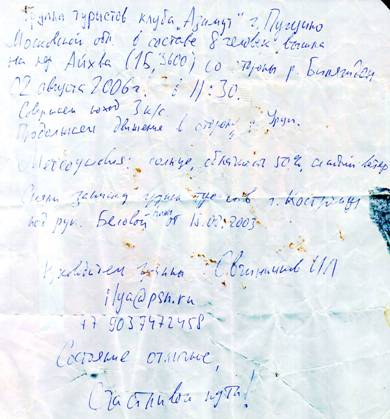 Группа туристов клуба "Азимут" г. Пущино
Московской обл. в составе 8 человек вышла
на пер Айхва (1Б, 3600) со стороны р.
02 августа 2006г. в 11:30.
Совершаем поход 3 к/с
Продолжаем движение в сторону р. Уруп.
Метеоусловия: солнце, облачность 50%, слабый ветер
Сняли записку туристов г. Костромы
под рук. Беловой от 15.07.2003
Руководитель группы: Овчинников ИЛ
ilya@psn.ru
+7 9037472458
Состояние отличное,
Счастливого пути!